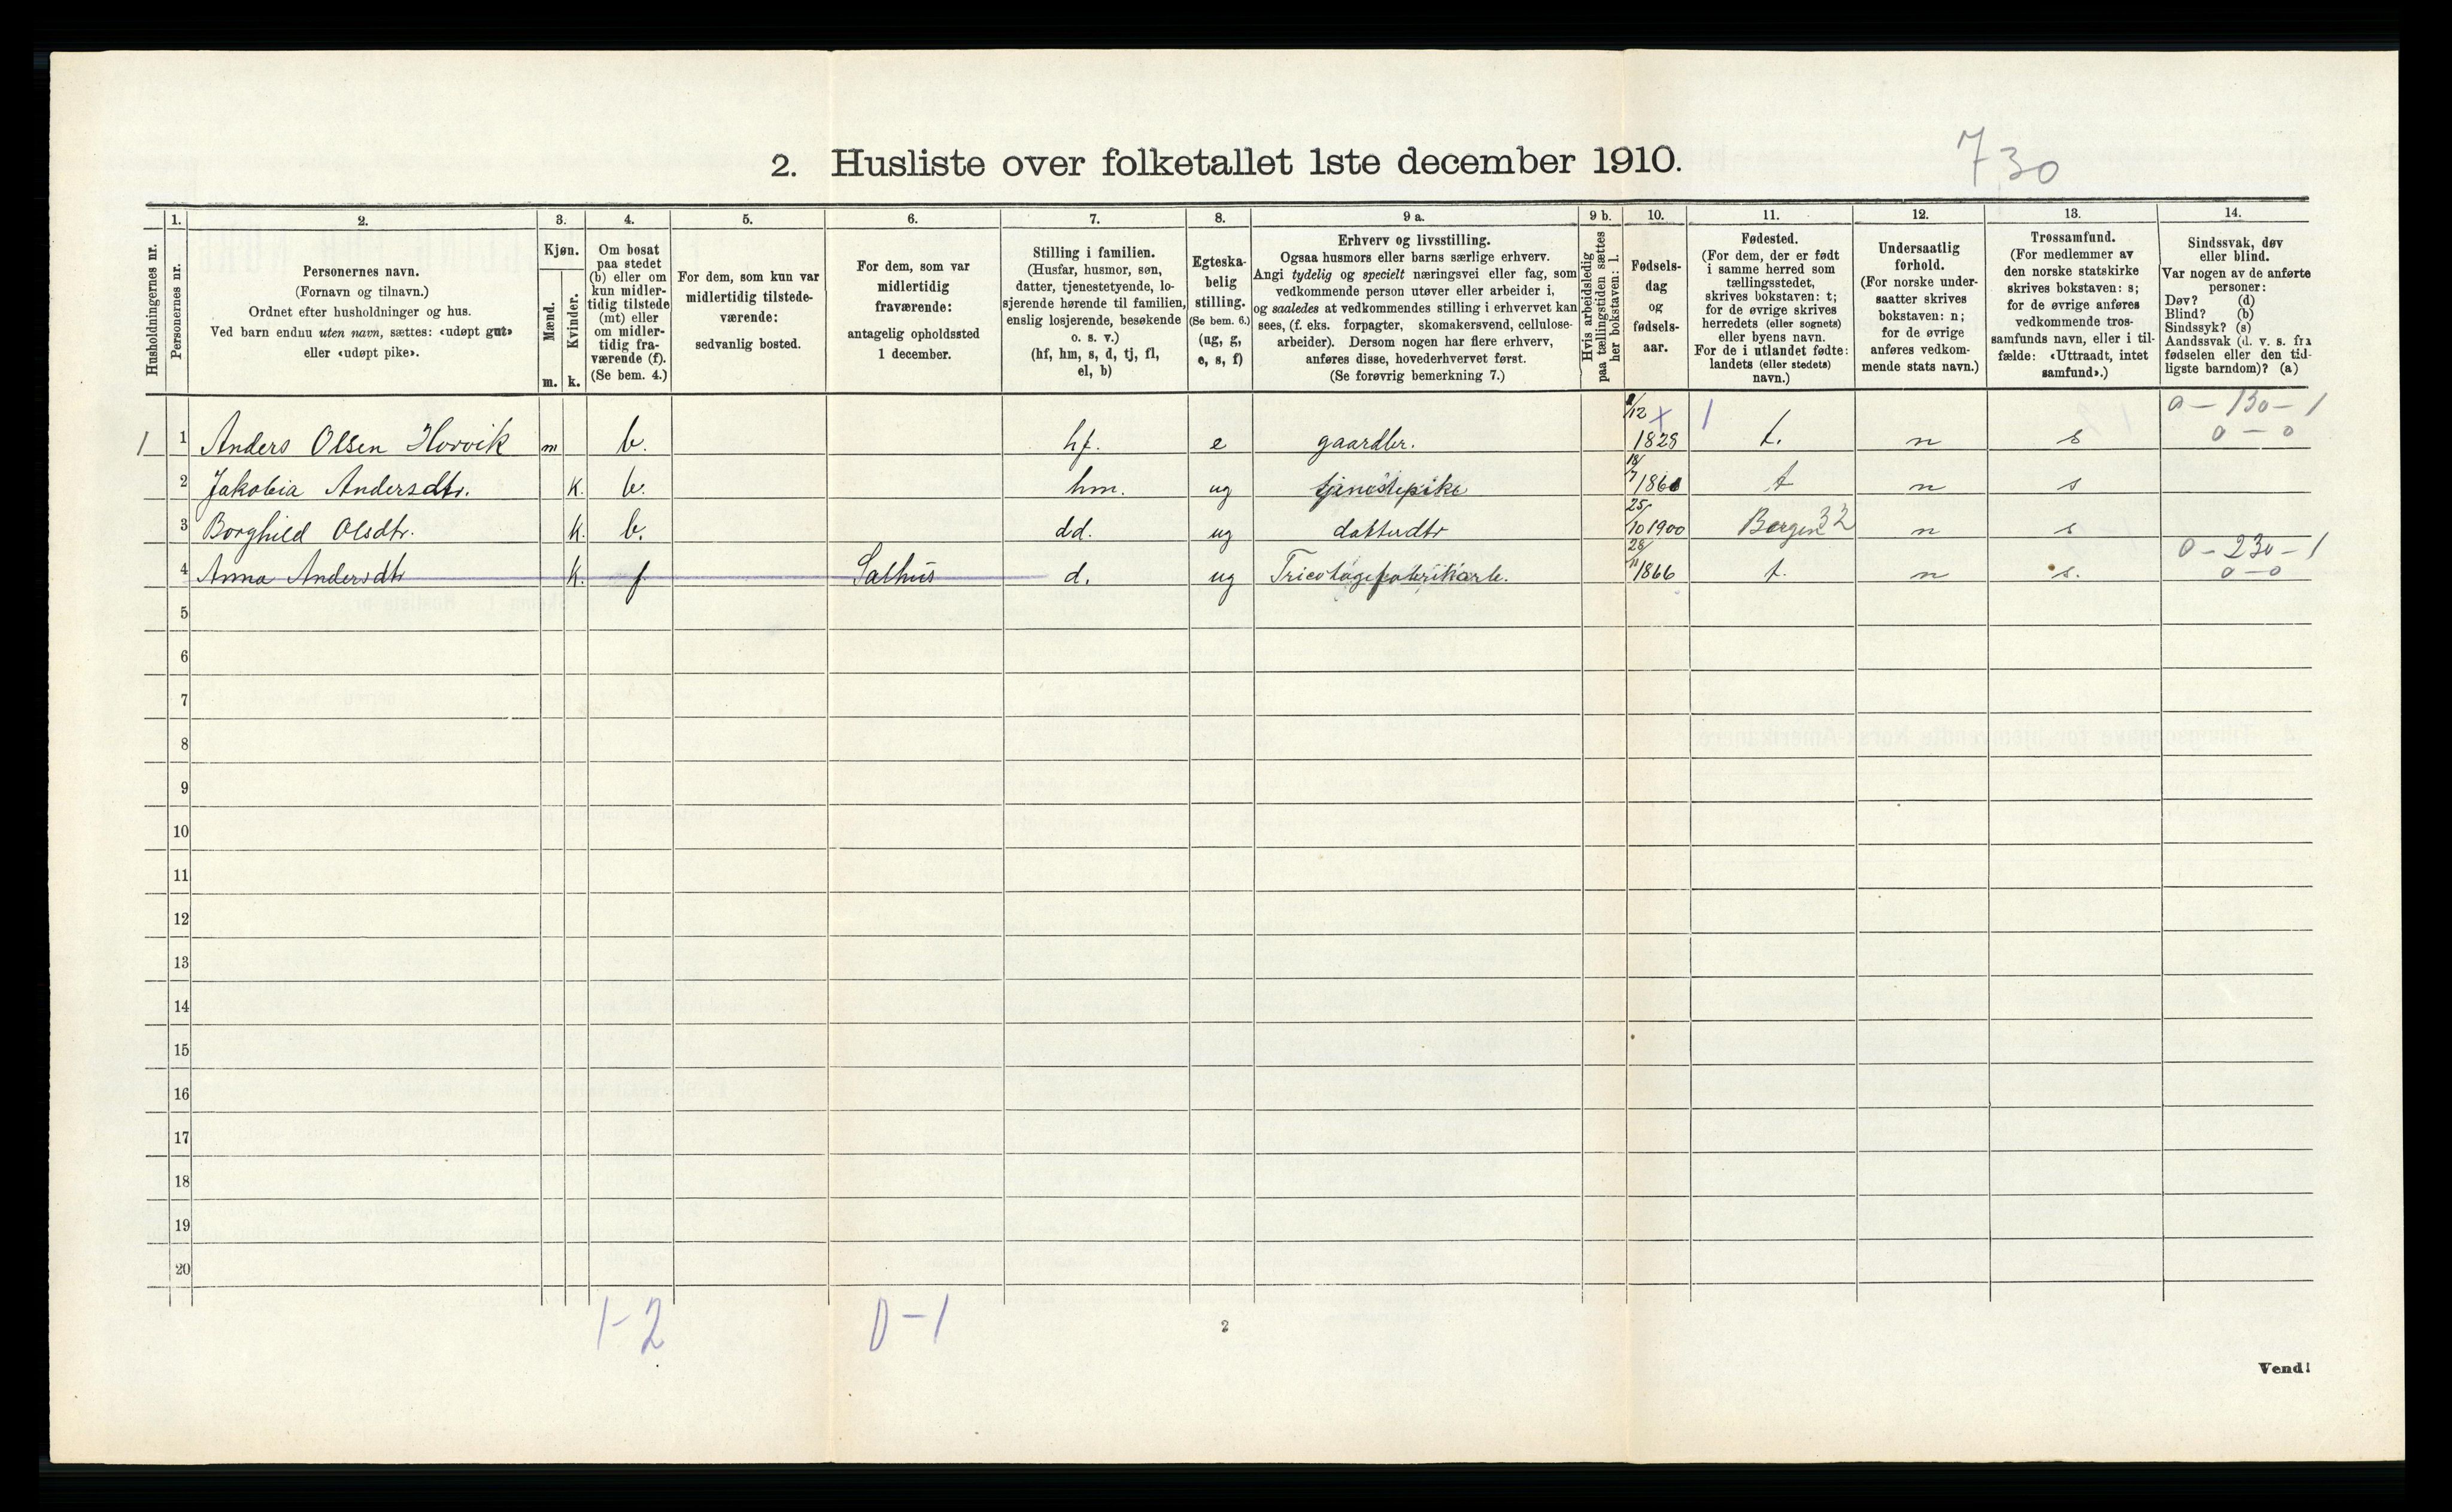 730
2. Husliste over folketallet 1ste december 1910.
Husholdningernes nr.
1.
Personernes nr.
2.
Personernes navn.
(Fornavn og tilnavn.)
Ordnet efter husholdninger og hus.
Ved barn endnu uten navn, sættes: «udøpt gut»
eller «udøpt pike».
3.
Kjøn.
Mænd.
Kvinder.
m. k.
4.
Om bosat
paa stedet
(b) eller om
kun midler-
tidig tilstede
(mt) eller
om midler-
tidig fra-
værende (f).
(Se bem. 4.)
5.
For dem, som kun var
midlertidig tilstede-
værende:
sedvanlig bosted.
6.
For dem, som var
midlertidig
fraværende:
antagelig opholdssted
1 december.
7.
Stilling i familien.
(Husfar, husmor, søn,
datter, tjenestetyende, lo-
sjerende hørende til familien,
enslig losjerende, besøkende
o. s. v.)
(hf, hm, s, d, tj, fl,
el, b)
8.
Egteska-
belig
stilling.
(Se bem. 6.)
(ug, g,
e, s, f)
9 a.
Erhverv og livsstilling.
Ogsaa husmors eller barns særlige erhverv.
Angi tydelig og specielt næringsvei eller fag, som
vedkommende person utøver eller arbeider i,
og saaledes at vedkommendes stilling i erhvervet kan
sees, (f. eks. forpagter, skomakersvend, cellulose-
arbeider). Dersom nogen har flere erhverv,
anføres disse, hovederhvervet først.
(Se forøvrig bemerkning 7.)
9 b.
Hvis arbeidsledig
paa tællingstiden sættes
her bokstaven: l.
10.
Fødsels-
dag
og
fødsels-
aar.
11.
Fødested.
(For dem, der er født
i samme herred som
tællingsstedet,
skrives bokstaven: t;
for de øvrige skrives
herredets (eller sognets)
eller byens navn.
For de i utlandet fødte:
landets (eller stedets)
navn.)
12.
Undersaatlig
forhold.
(For norske under-
saatter skrives
bokstaven: n;
for de øvrige
anføres vedkom-
mende stats navn.)
13.
Trossamfund.
(For medlemmer av
den norske statskirke
skrives bokstaven: s;
for de øvrige anføres
vedkommende tros-
samfunds navn, eller i til-
fælde: «Uttraadt, intet
samfund».)
14.
Sindssvak, døv
eller blind.
Var nogen av de anførte
personer:
Døv? (d)
Blind? (b)
Sindssyk? (s)
Aandssvak (d. v. s. fra
fødselen eller den tid-
ligste barndom)? (a)
1 1 Anders Olsen Horvik m b. hf. e gaardbr. /12 1828 t. n s 0 - 130 - 1
0 - 0
2 Jakobia Andersdtr. K. b. hm. ug tjenestepike 18/7 186 t n s
3 Borghild Olsdtr. K. b. dd. ug datterdtr 25/10 1900 Bergen 32 n s
4 Anna Andersdtr K. f Salhus d. ug Tricotagefabrikarb. 28/11 1866 t. n s. 0 - 230 - 1
0 - 0
5
6
7
8
9
10
11
12
13
14
15
16
17
18
19
20
1-2 0-1
2
Vend!